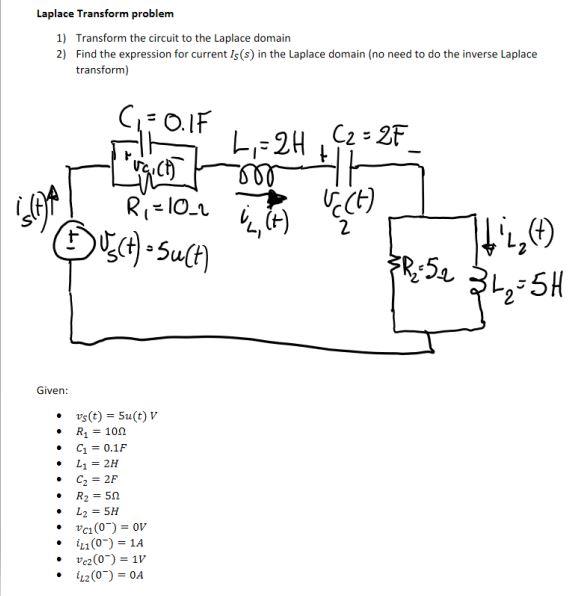 Laplace Transform problem
1) Transform the circuit to the Laplace domain
2) Find the expression for current I_S(s) in the Laplace domain (no need to do the inverse Laplace
transform)
C₁ = 0.1F
L₁ = 2H + C₂ = 2F −
+ v_C₁(t) −
i_s(t)
R₁ = 10Ω
i_L₁(t)
v_C₂(t)
i_L₂(t)
+ − v_s(t) = 5u(t)
R₂ = 5Ω
L₂ = 5H
Given:
• v_S(t) = 5u(t) V
• R₁ = 10Ω
• C₁ = 0.1F
• L₁ = 2H
• C₂ = 2F
• R₂ = 5Ω
• L₂ = 5H
• v_C1(0⁻) = 0V
• i_L1(0⁻) = 1A
• v_c2(0⁻) = 1V
• i_L2(0⁻) = 0A